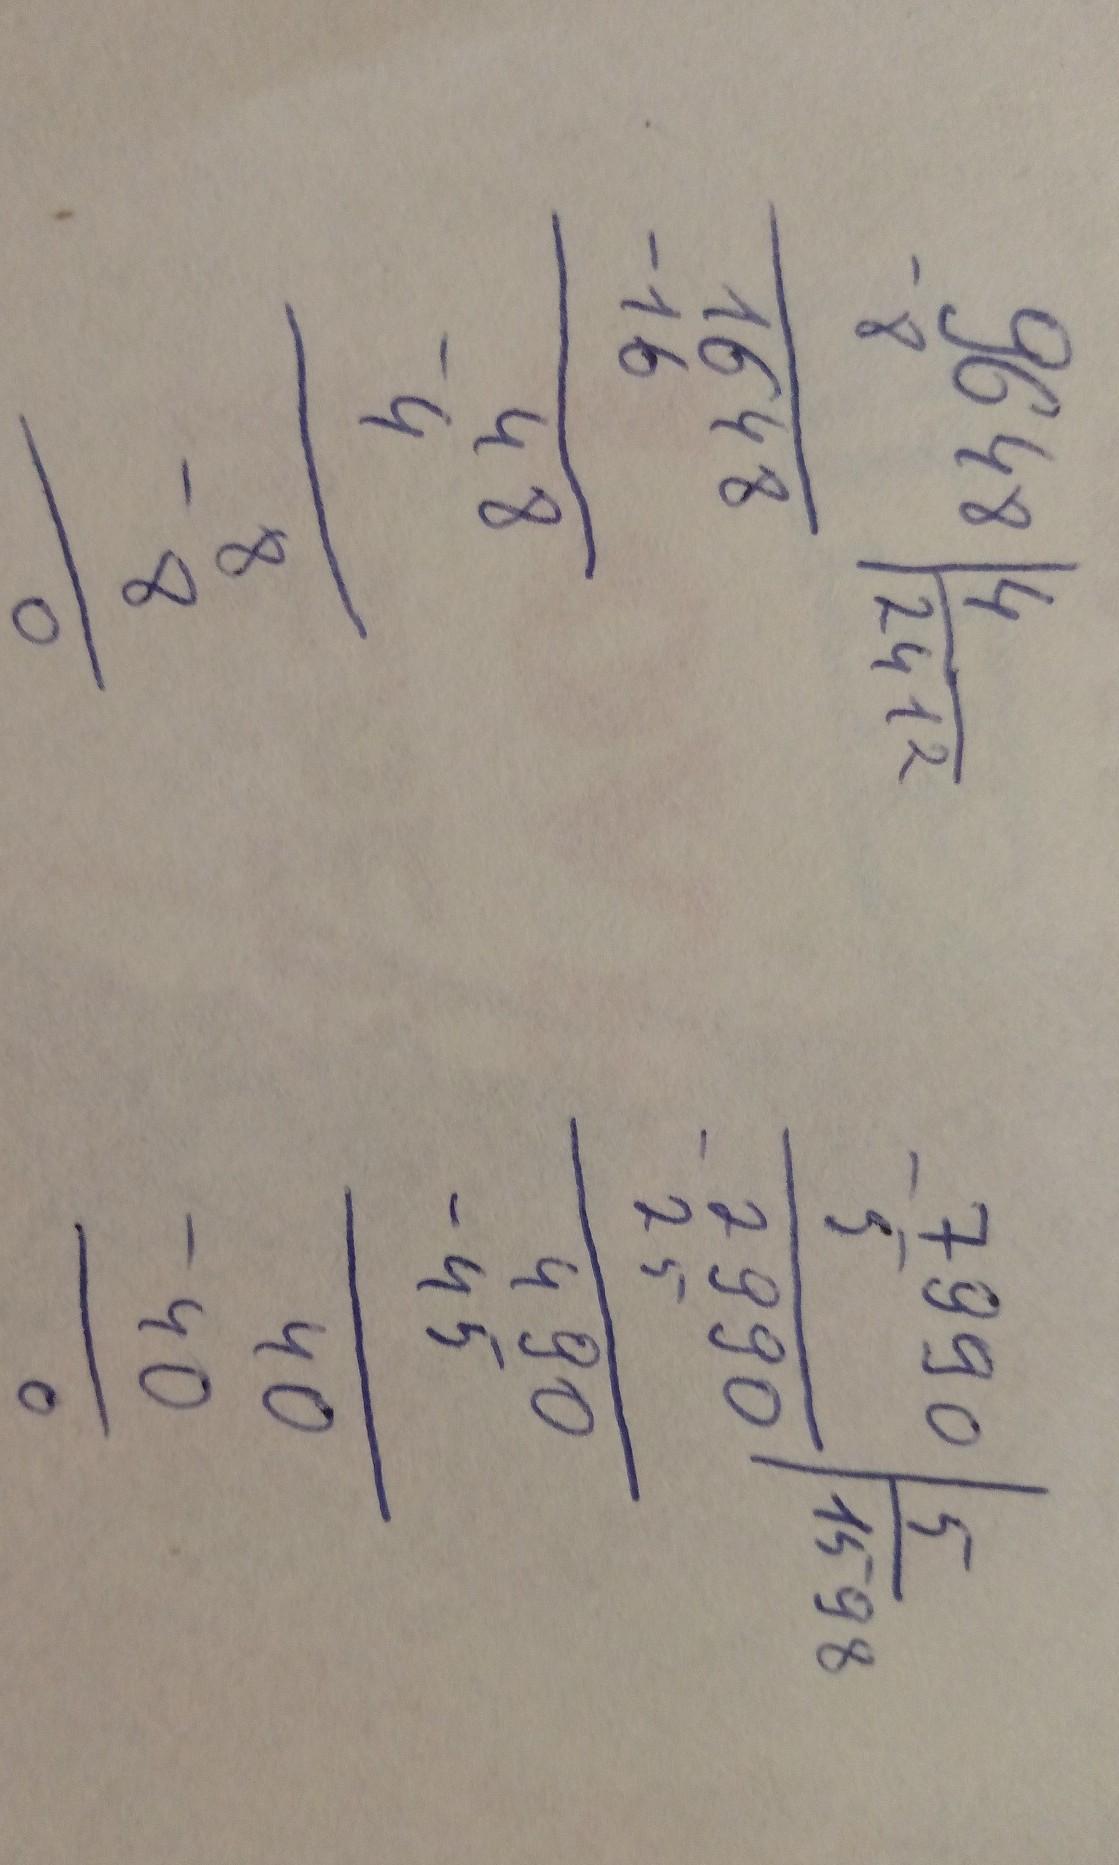 9648 | 4
-8 | 2412
1648
-16
48
-4
8
-8
0
7990 | 5
-5 | 1598
2990
-25
490
-45
40
-40
0